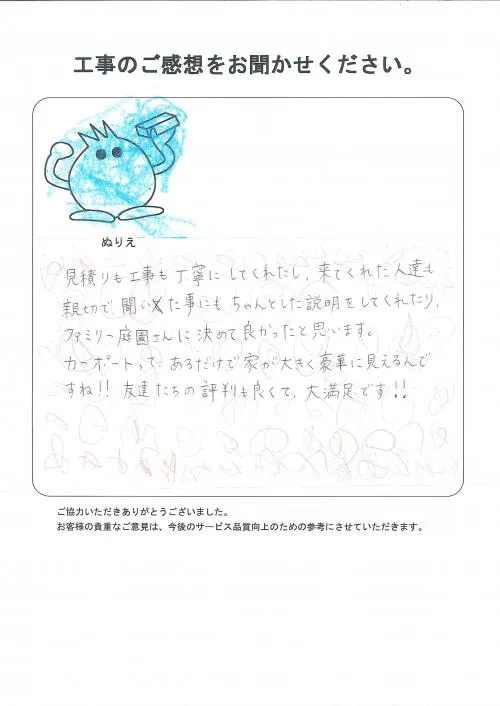 工事のご感想をお聞かせください。
ぬりえ
見積りも工事も丁寧にしてくれたし、来てくれた人達も
親切で、聞いた事にもちゃんとした説明をしてくれたり、
ファミリー庭園さんに決めて良かったと思います。
カーポートって、あるだけで家が大きく豪華に見えるんで
すね!! 友達たちの評判も良くて、大満足です!!
ご協力いただきありがとうございました。
お客様の貴重なご意見は、今後のサービス品質向上のための参考にさせていただきます。